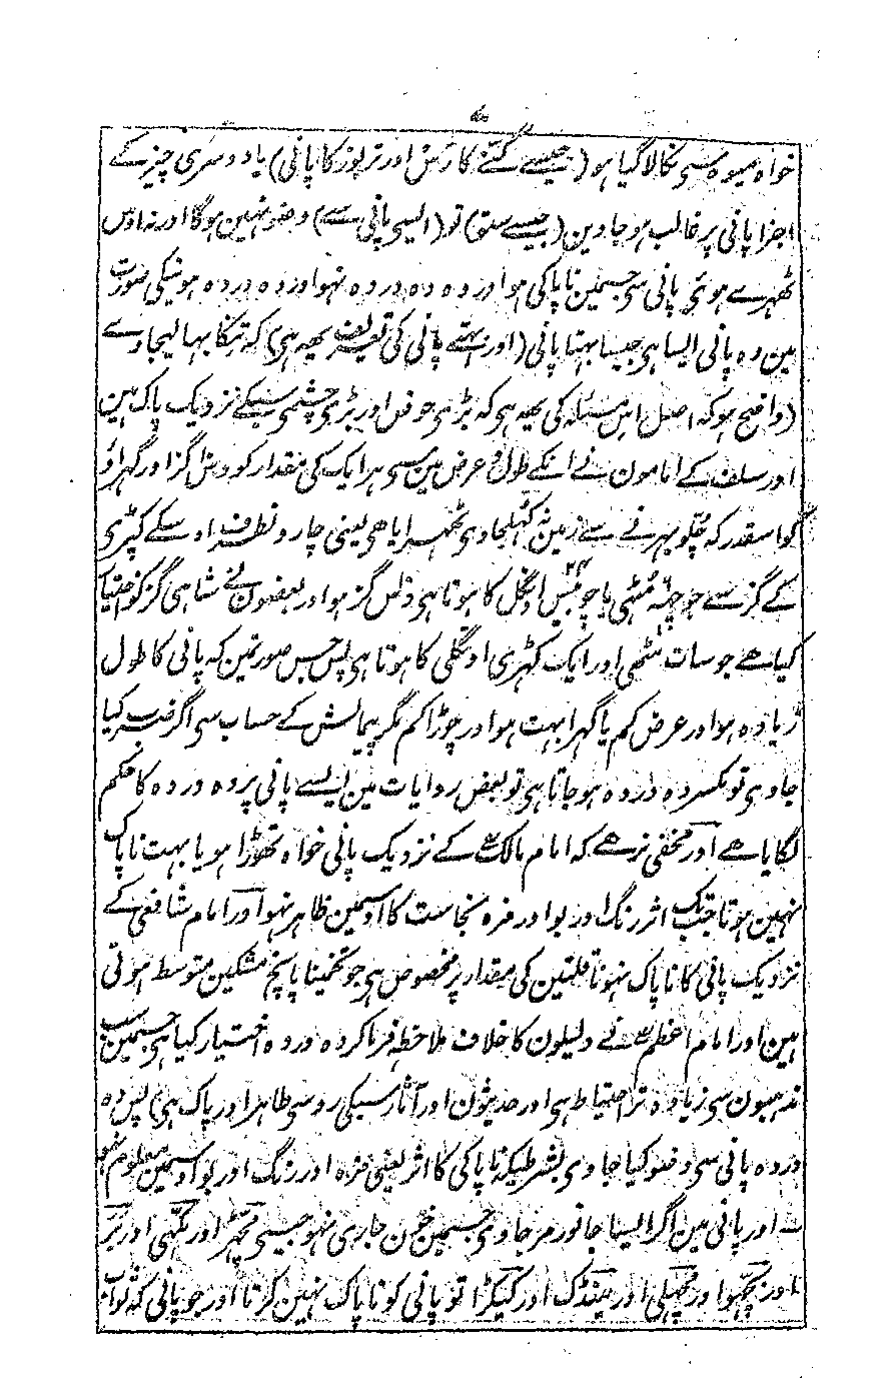 خواہ میوہ سی نکالا گیا ہو (جیسے گنّے کا رس اور تربوز کا پانی) یا دوسری چیز کے
اجزا پانی پر غالب ہو جاوین (جیسے ستو) تو (ایسی پانی سے) وضو نہین ہوگا اور نہ اوس
ٹھہرے ہوئی پانی سی جسمین ناپاکی ہو اور دہ دہ در دہ نہو اور دہ در دہ ہونیکی صورت
مین دہ پانی ایسا ہی جیسا بہتا پانی (اور بہتے پانی کی تعریف یھہ ہی) کہ تنکا بہا لیجاوے
(واضح ہو کہ اصل اس مسئلہ کی یھہ ہی کہ بڑی حوض اور بڑی چشمی سبکے نزدیک پاک ہین
اور سلف کے امامون نے انکے طول و عرض مین سی ہر ایک کی مقدار کو دس گز اور گہراؤ
کو اسقدر کہ چلّو بھرنے سے زمین نہ کھلجاوی ٹھہرایا ھی یعنی چارو نطرف اوسکے کپڑی
کے گز سے جو چھہ مٹھی یا چوبیس ۲۴ اونگل کا ہوتا ہی دس گز ہو اور بعضون نے شاہی گز کو اختیار
کیا ھے جو سات مٹھی اور ایک کھڑی اونگلی کا ہوتا ہی پس جس صورتمین کہ پانی کا طول
زیادہ ہو اور عرض کم یا گہرا بہت ہو اور چوڑا کم مگر پیمایش کے حساب سی اگر ضرب کیا
جاوی تو مکسر دہ در دہ ہو جاتا ہی تو بعض روایات مین ایسے پانی پر دہ در دہ کا حکم
لگایا ھے اور مخفی نرھے کہ امام مالک کے نزدیک پانی خواہ تھوڑا ہو یا بہت ناپاک
نہین ہوتا جبتک اثر رنگ اور بو اور مزہ نجاست کا اوسمین ظاہر نہو اور امام شافعی کے
نزدیک پانی کا ناپاک نہونا قلتین کی مقدار پر مخصوص ہی جو تخمینا پانچ مشکین متوسط ہوتی
ہین اور امام اعظم نے دلیلون کا خلاف ملاحظہ فرما کر دہ در دہ اختیار کیا ہی جسمین سب
مذہبون سی زیادہ تر احتیاط ہی اور حدیثون اور آثار سبکی رو سی طاہر اور پاک ہی) پس دہ
در دہ پانی سی وضو کیا جاوی بشرطیکہ ناپاکی کا اثر یعنی مزہ اور رنگ اور بو اوسمین معلوم نہو
اور پانی مین اگر ایسا جانور مر جاوی جسمین خون جاری نہو جیسی مچھر اور مکھی اور بھڑ
اور بچھو اور مچھلی اور مینڈک اور کیکڑا تو پانی کو ناپاک نہین کرتا اور جو پانی کہ ثواب